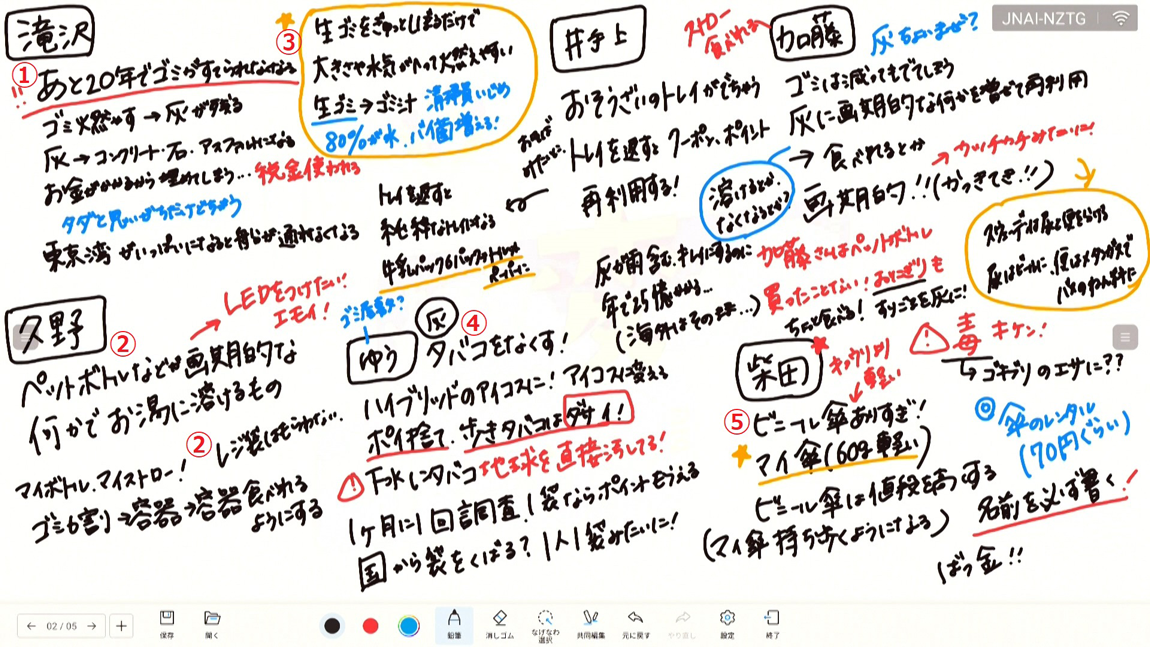 JNAI-NZTG
滝沢
① あと20年でゴミがすてられなくなる
!!
ゴミ燃やす→灰が残る
灰→コンクリート・石・アスファルトになる
お金がかかるから埋めてしまう… 税金使われる
タダと思いがちだけどちがう
東京湾がいっぱいになると船が通れなくなる
③ 生ゴミをぎゅっとしぼるだけで
大きさや水気がへって燃えやすい
生ゴミ→ゴミ汁 清掃員いじめ
80%が水、バイ菌増える!
井上
おそうざいのトレイがでちゃう
トレイを返すとクーポン、ポイント
再利用する!
トレイを返すと
純粋なトレイになる
牛乳パックもパックやトレット
ペーパーに
ストロー
食べれる
加藤
灰ちょいまぜ?
ゴミは減ってもでてしまう
灰に画期的な何かを増ぜて再利用
→食べれるとか
→カッチカチみたいに!
画期的!!(かっきてき!!)
溶けるとか
なくなるとか?
加藤さんはペットボトル
買ったことない! おにぎりも
ちゃんと食べる!
(海外はその
毒 キケン!
↳ゴキブリのエサに??
久野
②
LEDをつけたい!
エモイ!
ペットボトルなどが画期的な
何かでお湯に溶けるもの
② レジ袋はもらわない
マイボトル、マイストロー!
ゴミ6割→容器→容器食べれる
ようにする
ゆう
灰 ④
タバコをなくす!
ハイブリッドのアイコスに! アイコスに変える
ポイ捨て、歩きタバコはダサイ!
下水にタバコ 地球を直接汚してる!
1ヶ月に1回調査 1袋ならポイントもらえる
国から袋をくばる? 1人1袋みたいに!
柴田
キュウリより
軽い
⑤ ビニール傘ありすぎ!
マイ傘(60g軽い)
ビニール傘は値段を高する
(マイ傘持ち歩くようになる)
◎ 傘のレンタル
(70円ぐらい)
名前を必ず書く!
ばっ金!!
02 / 05
保存
開く
鉛筆
消しゴム
なげなわ
選択
共同編集
元に戻す
やり直し
設定
終了